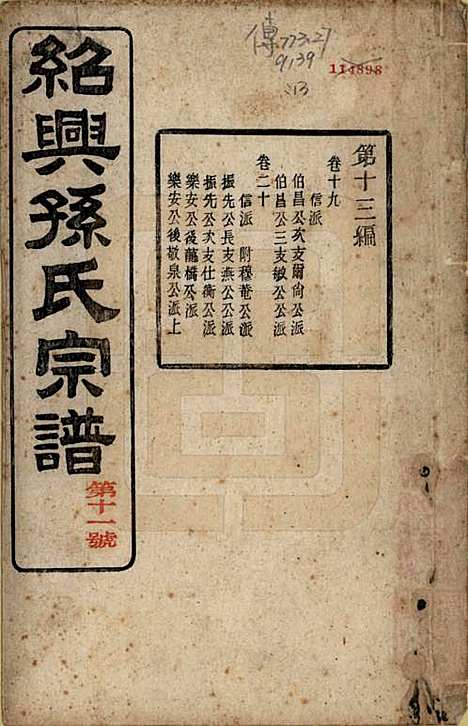 傳773.27
9139
:13
114898
第十三編
卷十九
信派
伯昌公次支爾尙公派
伯昌公三支敏公公派
卷二十
信派 附穆菴公派
振先公長支燕公公派
振先公次支仕衡公派
樂安公後萬橋公派
樂安公後敬泉公派上
紹興孫氏宗譜
第十一號